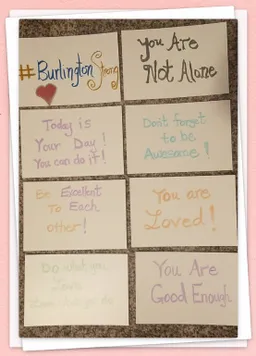 #Burlington Strong
You Are
Not Alone
Today is
Your Day!
You can do it!
Don't forget
to be
Awesome!
Be Excellent
To Each
other!
You are
Loved!
Do what you
Love
what you do
You Are
Good Enough